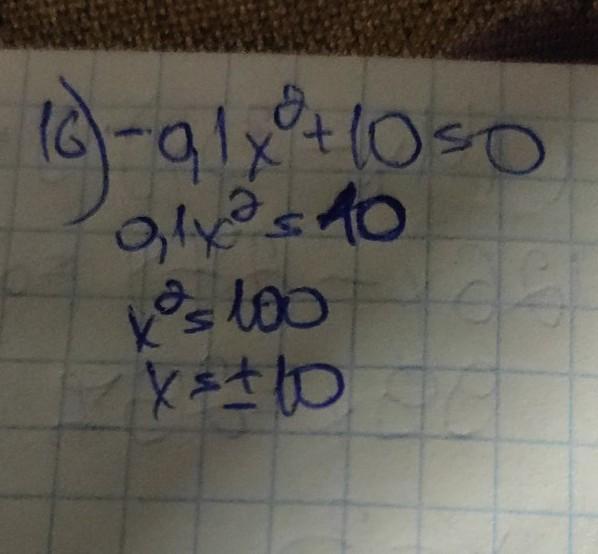 16) -0,1x² + 10 = 0
0,1x² = 10
x² = 100
x = ± 10